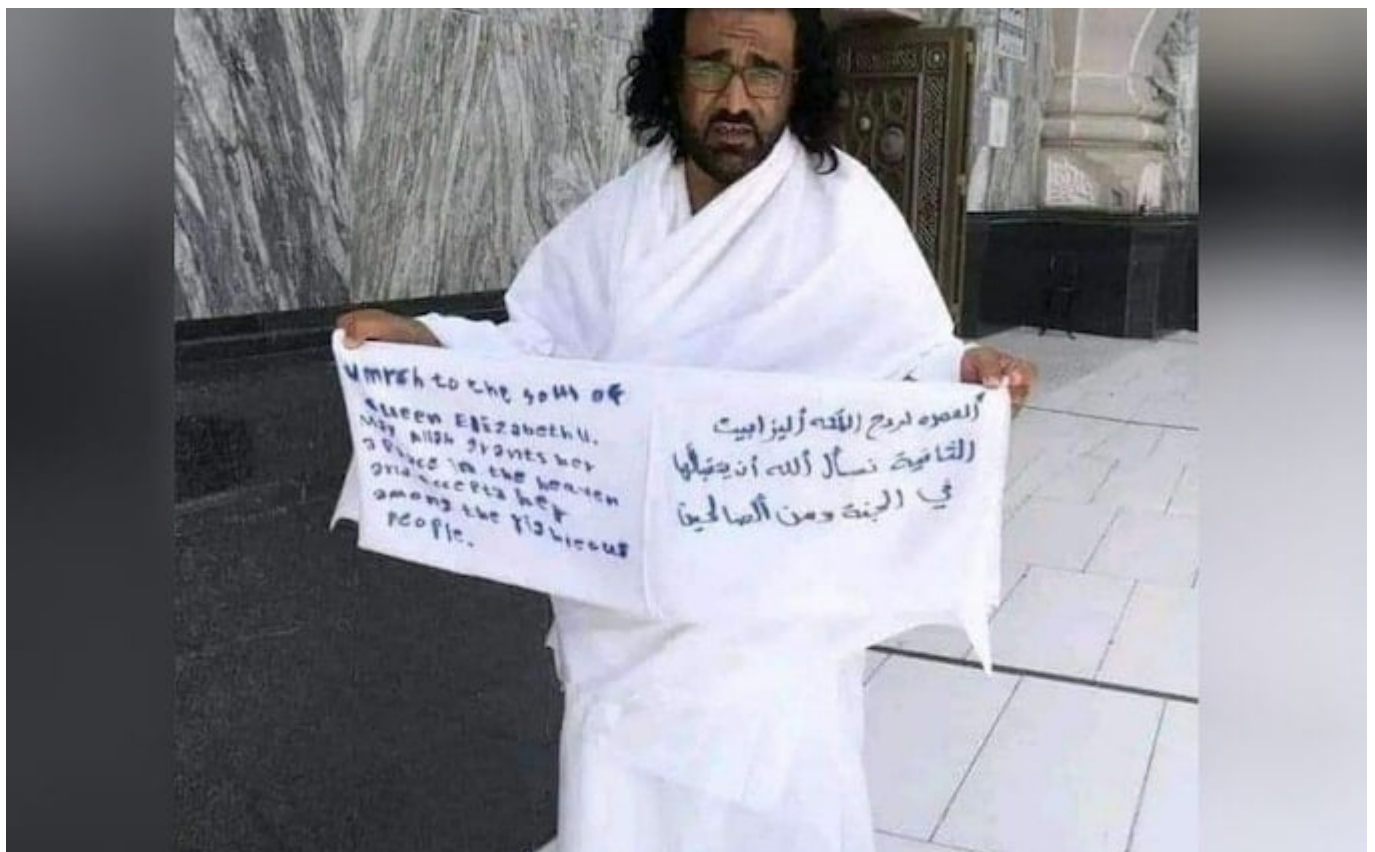 Umrah to the soul of
Queen Elizabeth II.
May Allah grants her
a Place in the heaven
and accepts her
among the righteous
People.
ألعمره لروح الملكه أليزابيث
الثانية نسأل ألله أن يتقبالها
في الجنة ومن ألصالحين